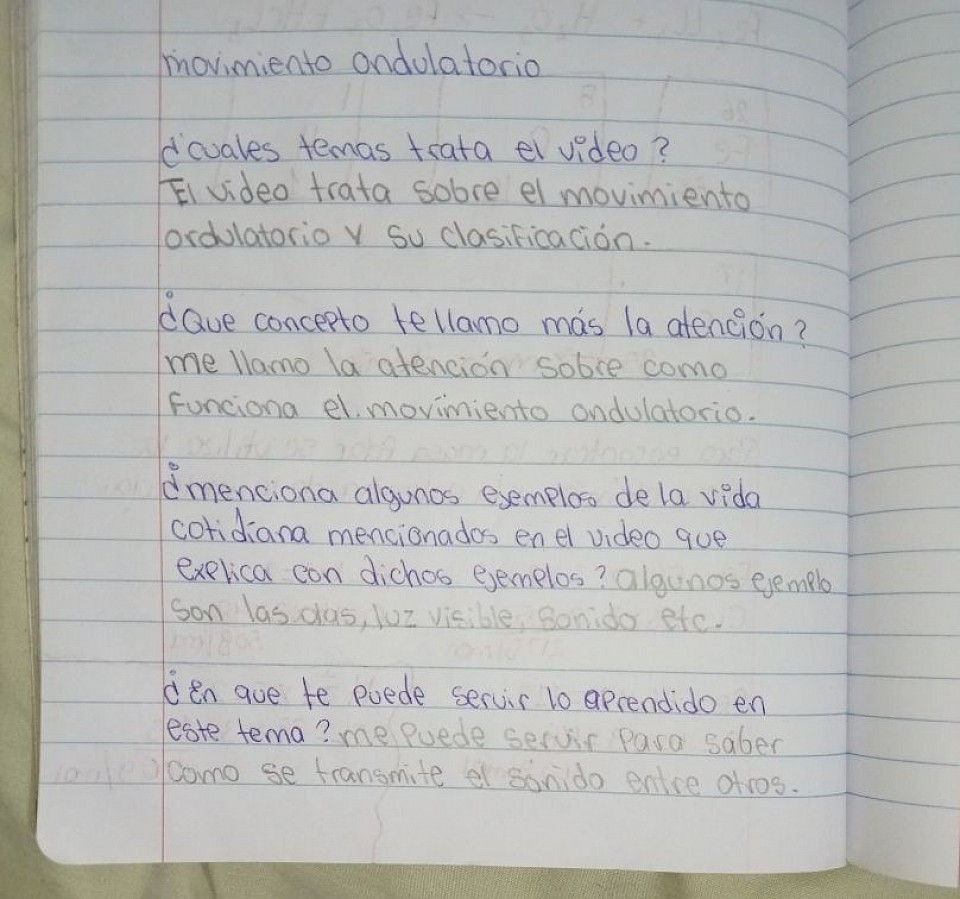 movimiento ondulatorio
¿cuales temas trata el video?
El video trata sobre el movimiento
ordulatorio y su clasificación.
¿Que concepto te llamo más la atención?
me llamo la atención sobre como
funciona el movimiento ondulatorio.
¿menciona algunos ejemplos de la vida
cotidiana mencionados en el video que
explica con dichos ejemplos? algunos ejemplo
son las olas, luz visible, sonido etc.
¿En que te puede servir lo aprendido en
este tema? me puede servir para saber
como se transmite el sonido entre otros.